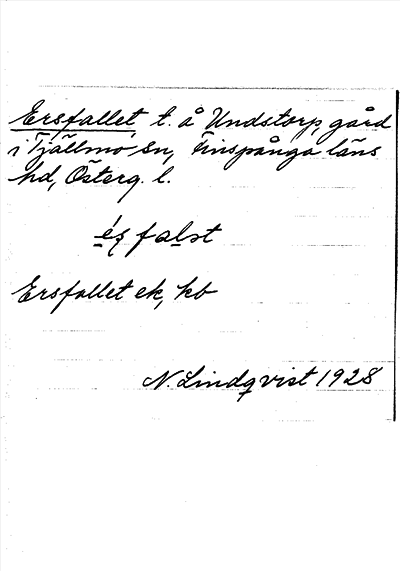 Ersfallet t. å Undstorp, gård
i Tjällmo sn, Finspånga läns
hd, Österg. l.
falst
Ersfallet ek, kb
N. Lindqvist 1928